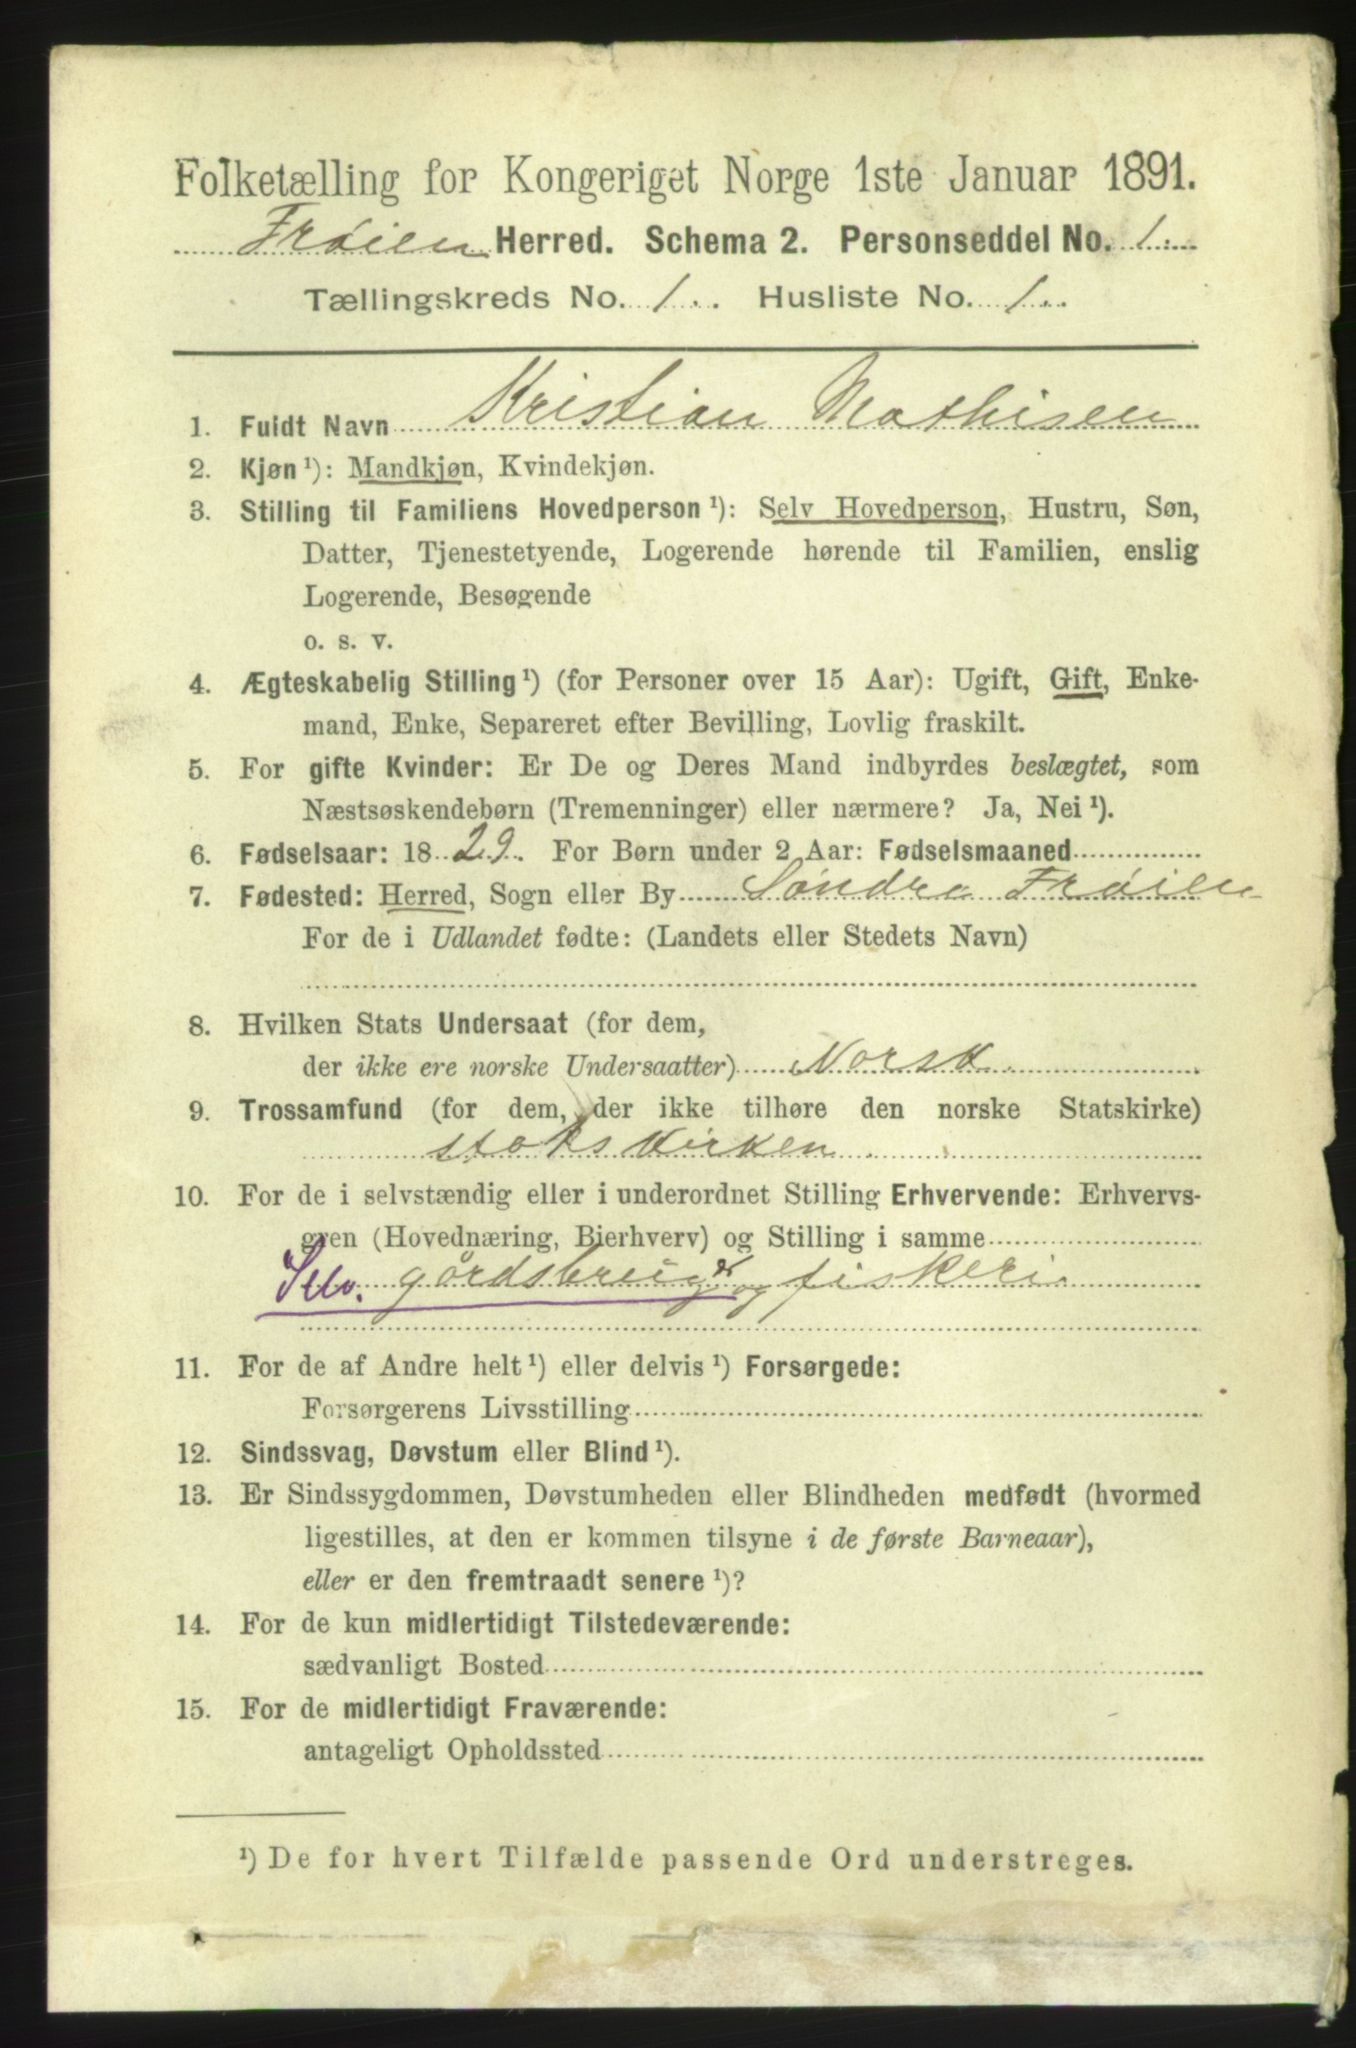 Folketælling for Kongeriget Norge 1ste Januar 1891.
Frøien Herred. Schema 2. Personseddel No. 1.
Tællingskreds No. 1. Husliste No. 1.
1. Fuldt Navn Kristian Mathisen
2. Kjøn ¹): Mandkjøn, Kvindekjøn.
3. Stilling til Familiens Hovedperson ¹): Selv Hovedperson, Hustru, Søn,
Datter, Tjenestetyende, Logerende hørende til Familien, enslig
Logerende, Besøgende
o. s. v.
4. Ægteskabelig Stilling ¹) (for Personer over 15 Aar): Ugift, Gift, Enke-
mand, Enke, Separeret efter Bevilling, Lovlig fraskilt.
5. For gifte Kvinder: Er De og Deres Mand indbyrdes beslægtet, som
Næstsøskendebørn (Tremenninger) eller nærmere? Ja, Nei ¹).
6. Fødselsaar: 1829. For Børn under 2 Aar: Fødselsmaaned
7. Fødested: Herred, Sogn eller By Søndre Frøien
For de i Udlandet fødte: (Landets eller Stedets Navn)
8. Hvilken Stats Undersaat (for dem,
der ikke ere norske Undersaatter) Norsk
9. Trossamfund (for dem, der ikke tilhøre den norske Statskirke)
statskirken
10. For de i selvstændig eller i underordnet Stilling Erhvervende: Erhvervs-
gren (Hovednæring, Bierhverv) og Stilling i samme
Selv. gårdsbruger og fiskeri.
11. For de af Andre helt ¹) eller delvis ¹) Forsørgede:
Forsørgerens Livsstilling
12. Sindssvag, Døvstum eller Blind ¹).
13. Er Sindssygdommen, Døvstumheden eller Blindheden medfødt (hvormed
ligestilles, at den er kommen tilsyne i de første Barneaar),
eller er den fremtraadt senere ¹)?
14. For de kun midlertidigt Tilstedeværende:
sædvanligt Bosted
15. For de midlertidigt Fraværende:
antageligt Opholdssted
¹) De for hvert Tilfælde passende Ord understreges.